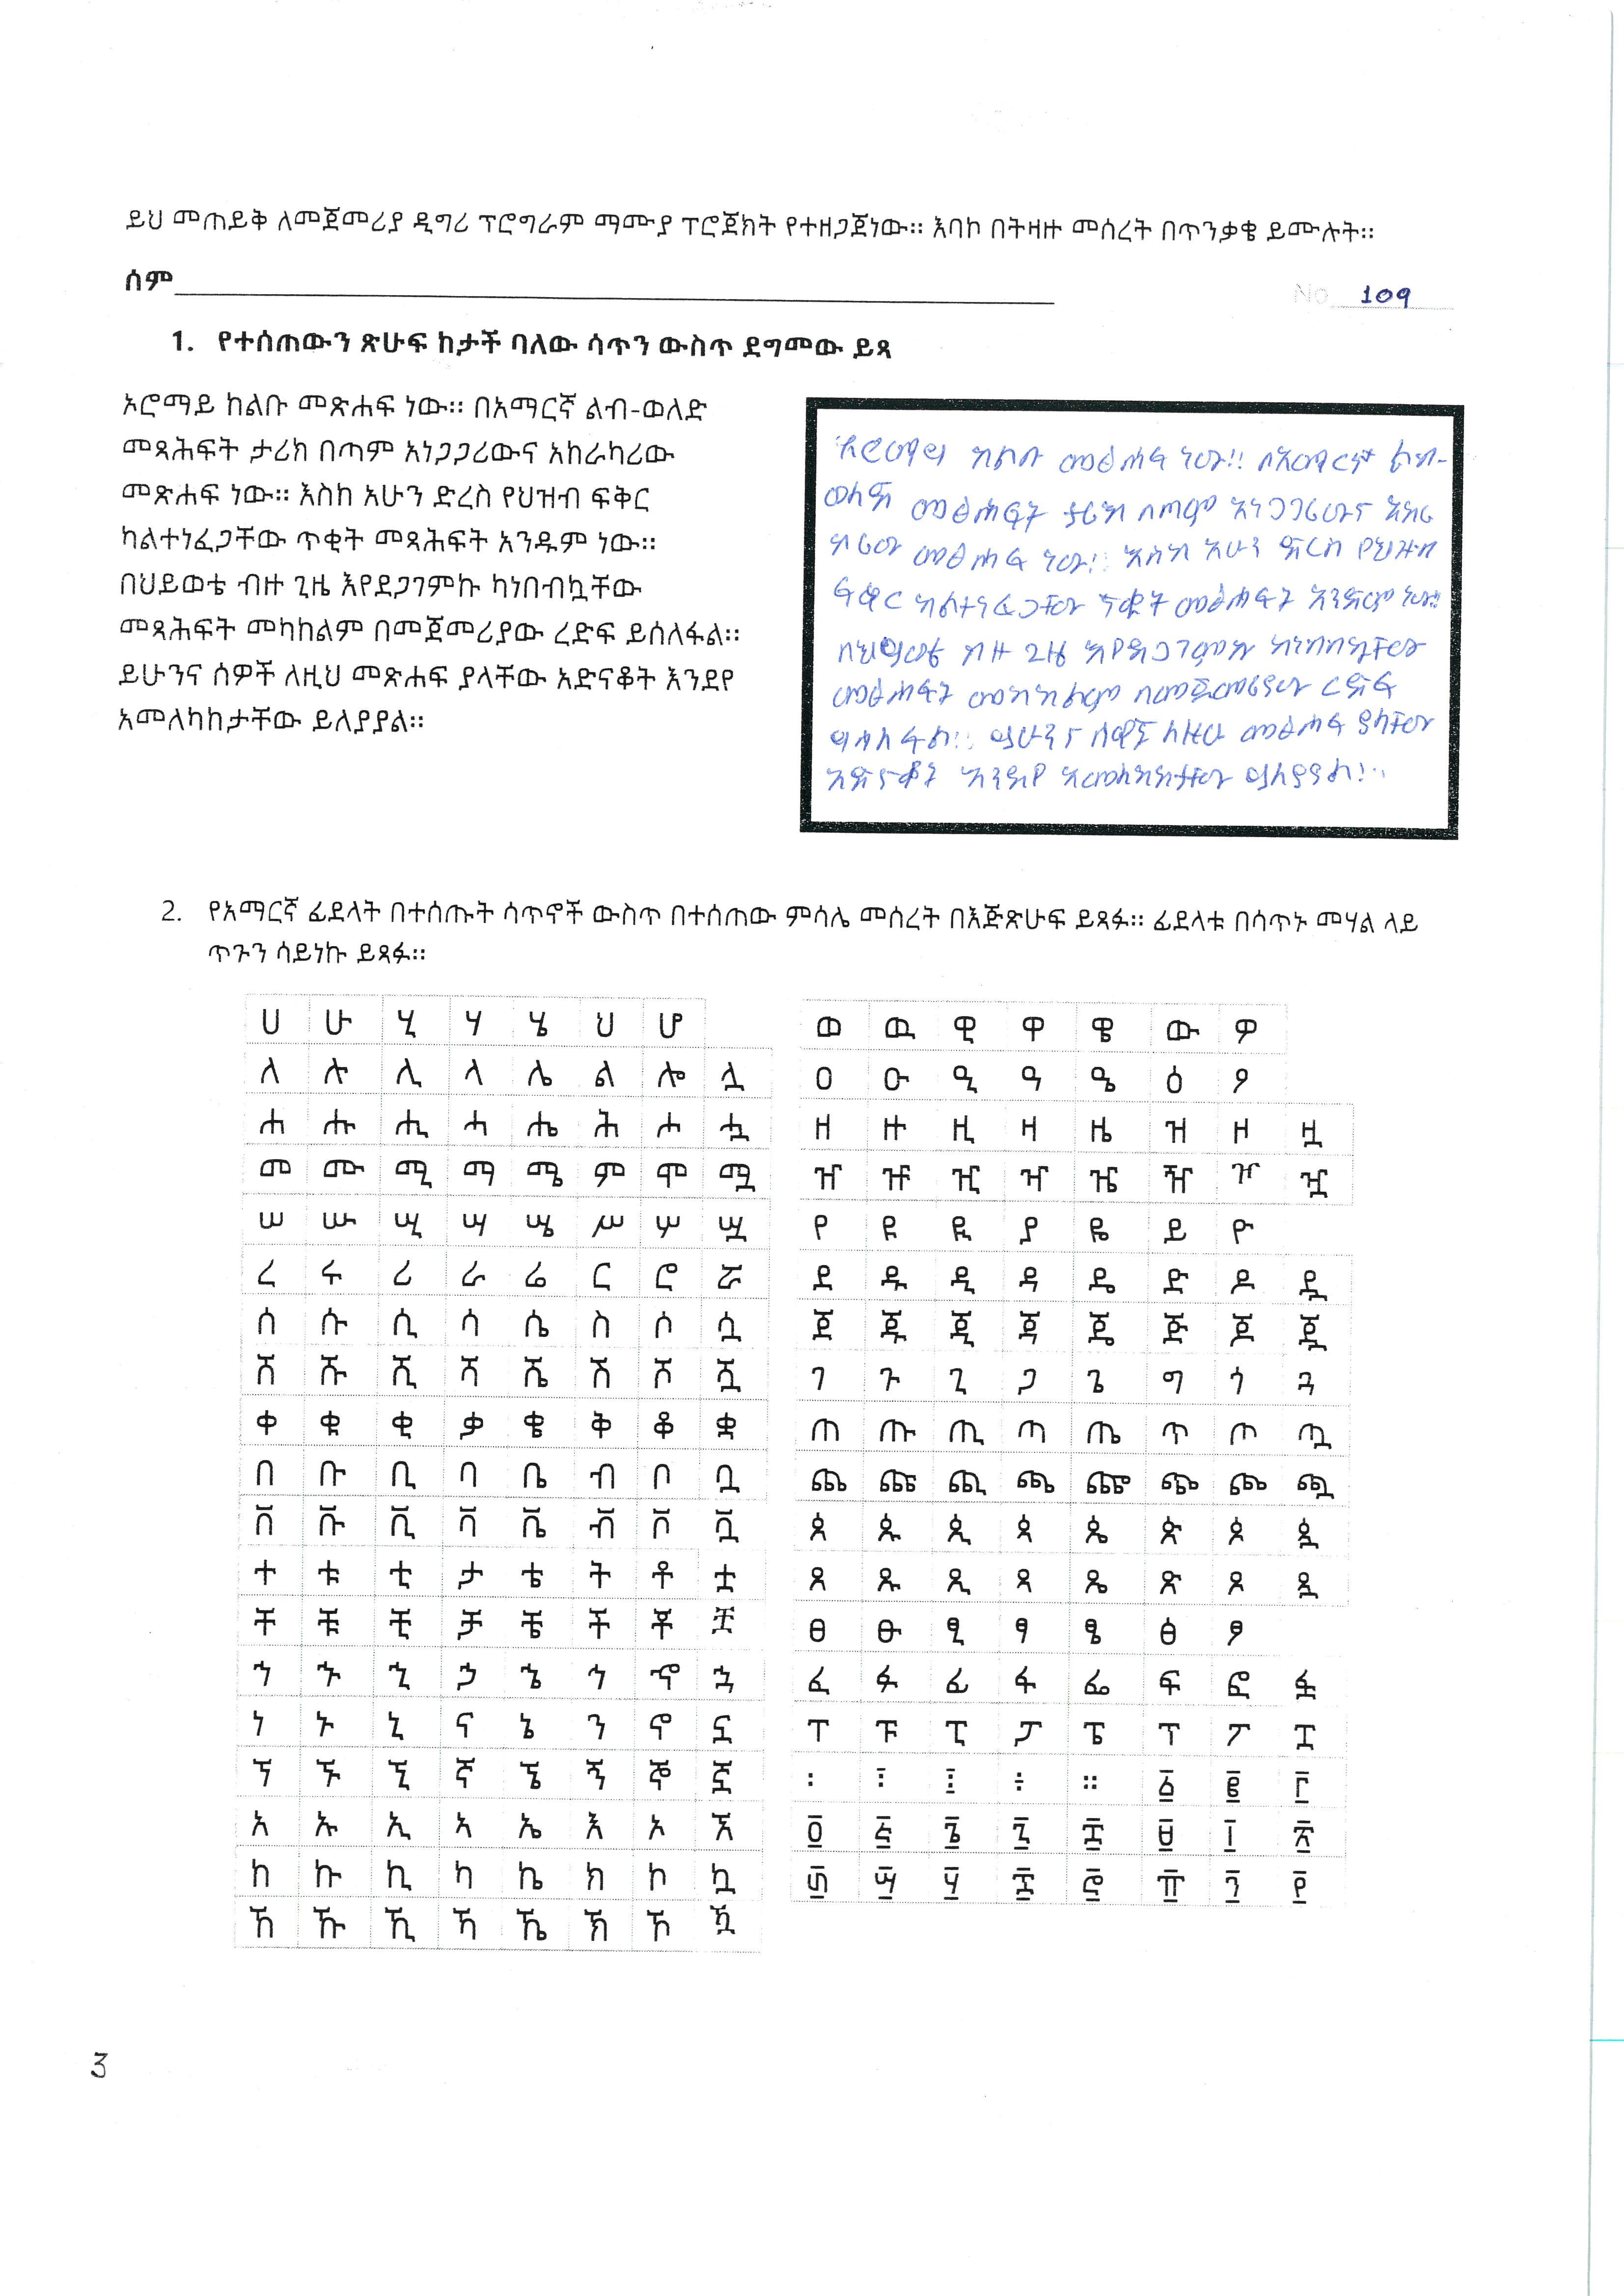 ይህ መጠይቅ ለመጀመሪያ ዲግሪ ፕሮግራም ማሙያ ፕሮጀክት የተዘጋጀነው። እባኮ በትዛዙ መሰረት በጥንቃቄ ይሙሉት።
ስም
No 109
1. የተሰጠውን ጽሁፍ ከታች ባለው ሳጥን ውስጥ ደግመው ይጻ
ኦሮማይ ከልቡ መጽሐፍ ነው። በአማርኛ ልብ-ወለድ
መጻሕፍት ታሪክ በጣም አነጋጋሪውና አከራካሪው
መጽሐፍ ነው። እስከ አሁን ድረስ የህዝብ ፍቅር
ካልተነፈጋቸው ጥቂት መጻሕፍት አንዱም ነው።
በህይወቴ ብዙ ጊዜ እየደጋገምኩ ካነበብኳቸው
መጻሕፍት መካከልም በመጀመሪያው ረድፍ ይሰለፋል።
ይሁንና ሰዎች ለዚህ መጽሐፍ ያላቸው አድናቆት እንደየ
አመለካከታቸው ይለያያል።
ኦሮማይ ከልቡ መፅሐፍ ነው። በአማርኛ ልብ-
ወለድ መፅሐፍት ታሪክ በጣም አነጋጋሪውና አከራ
ካሪው መፅሐፍ ነው። እስከ አሁን ድረስ የህዝብ
ፍቅር ካልተነፈጋቸው ጥቂት መፅሐፍት አንዱም ነው።
በህይወቴ ብዙ ጊዜ እየደጋገምኩ ካነበብኳቸው
መፅሐፍት መካከልም በመጀመሪያው ረድፍ
ይሰለፋል። ይሁንና ሰዎች ለዚህ መፅሐፍ ያላቸው
አድናቆት እንደየ አመለካከታቸው ይለያያል።
2. የአማርኛ ፊደላት በተሰጡት ሳጥኖች ውስጥ በተሰጠው ምሳሌ መሰረት በእጅጽሁፍ ይጻፉ። ፊደላቱ በሳጥኑ መሃል ላይ
ጥጉን ሳይነኩ ይጻፉ።
ሀ ሁ ሂ ሃ ሄ ህ ሆ
ለ ሉ ሊ ላ ሌ ል ሎ ሏ
ሐ ሑ ሒ ሓ ሔ ሕ ሖ ሗ
መ ሙ ሚ ማ ሜ ም ሞ ሟ
ሠ ሡ ሢ ሣ ሤ ሥ ሦ ሧ
ረ ሩ ሪ ራ ሬ ር ሮ ሯ
ሰ ሱ ሲ ሳ ሴ ስ ሶ ሷ
ሸ ሹ ሺ ሻ ሼ ሽ ሾ ሿ
ቀ ቁ ቂ ቃ ቄ ቅ ቆ ቋ
በ ቡ ቢ ባ ቤ ብ ቦ ቧ
ቨ ቩ ቪ ቫ ቬ ቭ ቮ ቯ
ተ ቱ ቲ ታ ቴ ት ቶ ቷ
ቸ ቹ ቺ ቻ ቼ ች ቾ ቿ
ኀ ኁ ኂ ኃ ኄ ኅ ኆ ኋ
ነ ኑ ኒ ና ኔ ን ኖ ኗ
ኘ ኙ ኚ ኛ ኜ ኝ ኞ ኟ
አ ኡ ኢ ኣ ኤ እ ኦ ኧ
ከ ኩ ኪ ካ ኬ ክ ኮ ኳ
ኸ ኹ ኺ ኻ ኼ ኽ ኾ ዃ
ወ ዉ ዊ ዋ ዌ ው ዎ
ዐ ዑ ዒ ዓ ዔ ዕ ዖ
ዘ ዙ ዚ ዛ ዜ ዝ ዞ ዟ
ዠ ዡ ዢ ዣ ዤ ዥ ዦ ዧ
የ ዩ ዪ ያ ዬ ይ ዮ
ደ ዱ ዲ ዳ ዴ ድ ዶ ዷ
ጀ ጁ ጂ ጃ ጄ ጅ ጆ ጇ
ገ ጉ ጊ ጋ ጌ ግ ጎ ጓ
ጠ ጡ ጢ ጣ ጤ ጥ ጦ ጧ
ጨ ጩ ጪ ጫ ጬ ጭ ጮ ጯ
ጰ ጱ ጲ ጳ ጴ ጵ ጶ ጷ
ጸ ጹ ጺ ጻ ጼ ጽ ጾ ጿ
ፀ ፁ ፂ ፃ ፄ ፅ ፆ
ፈ ፉ ፊ ፋ ፌ ፍ ፎ ፏ
ፐ ፑ ፒ ፓ ፔ ፕ ፖ ፗ
፡ ፧ ፤ ፥ ። ፩ ፪ ፫
፬ ፭ ፮ ፯ ፰ ፱ ፲ ፳
፴ ፵ ፶ ፷ ፸ ፹ ፺ ፻
3